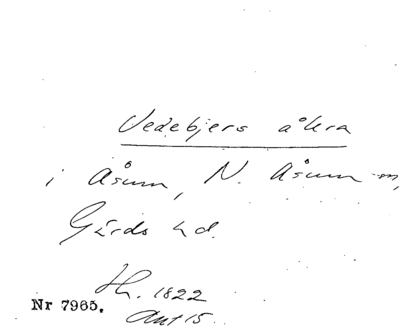 Vedebjers åkra
i Åsum, N. Åsum sn,
Gärds hd.
Hh. 1822
Akt 15
Nr 7965.